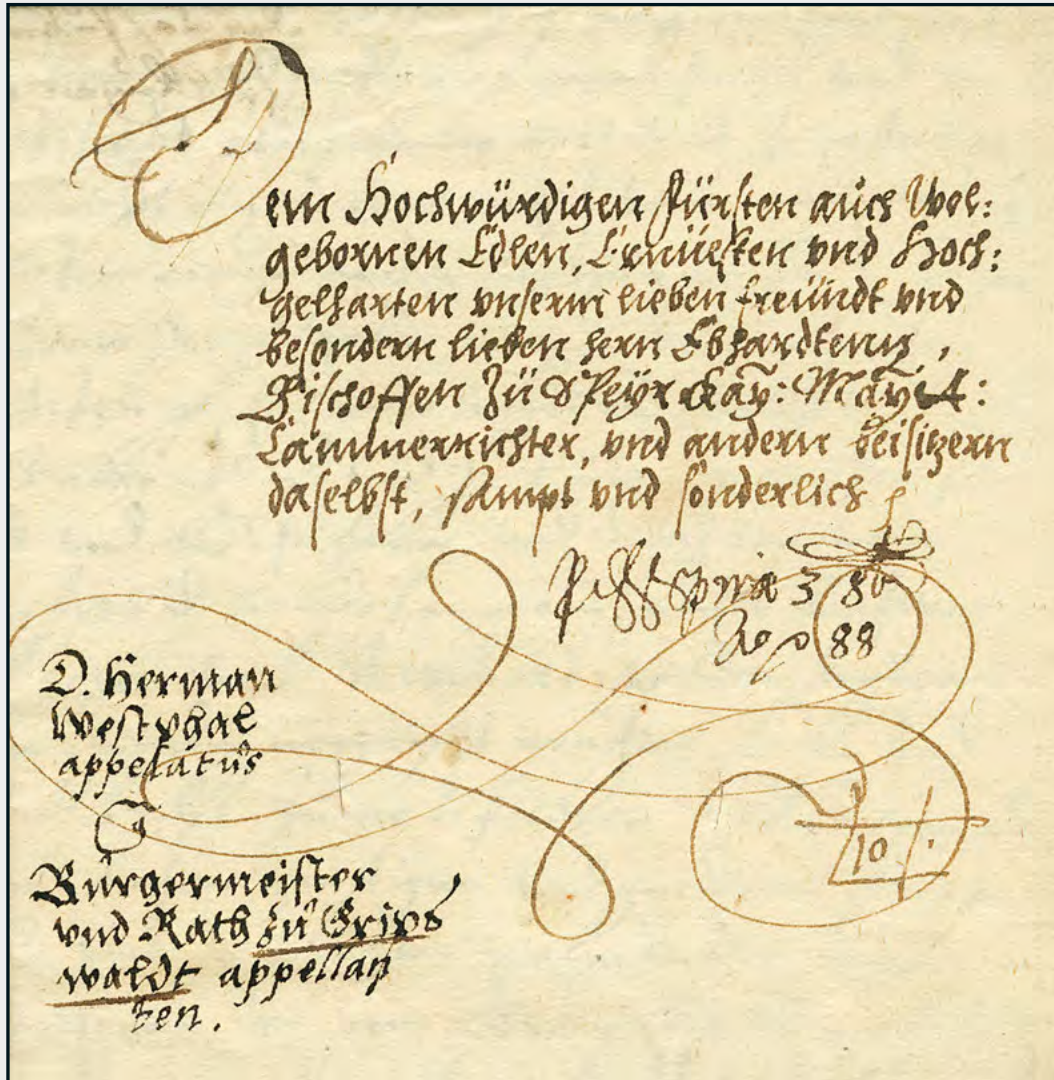 Dem Hochwürdigen Fürsten auch Wol:
gebornen Edlen, Ernuesten vnd Hoch:
gelharten vnserm lieben freundt vnd
besondern lieben hern Ebhardtenn,
Bischoffen Zu Speyr Kay: May:
Cammerrichter, vnd andern beisitzern
daselbst, sampt vnd sonderlich
Spirae 3
88
D. Herman
Westphal
appelatus
Burgermeister
vnd Rath zu Grips
waldt appellan
ten.
10